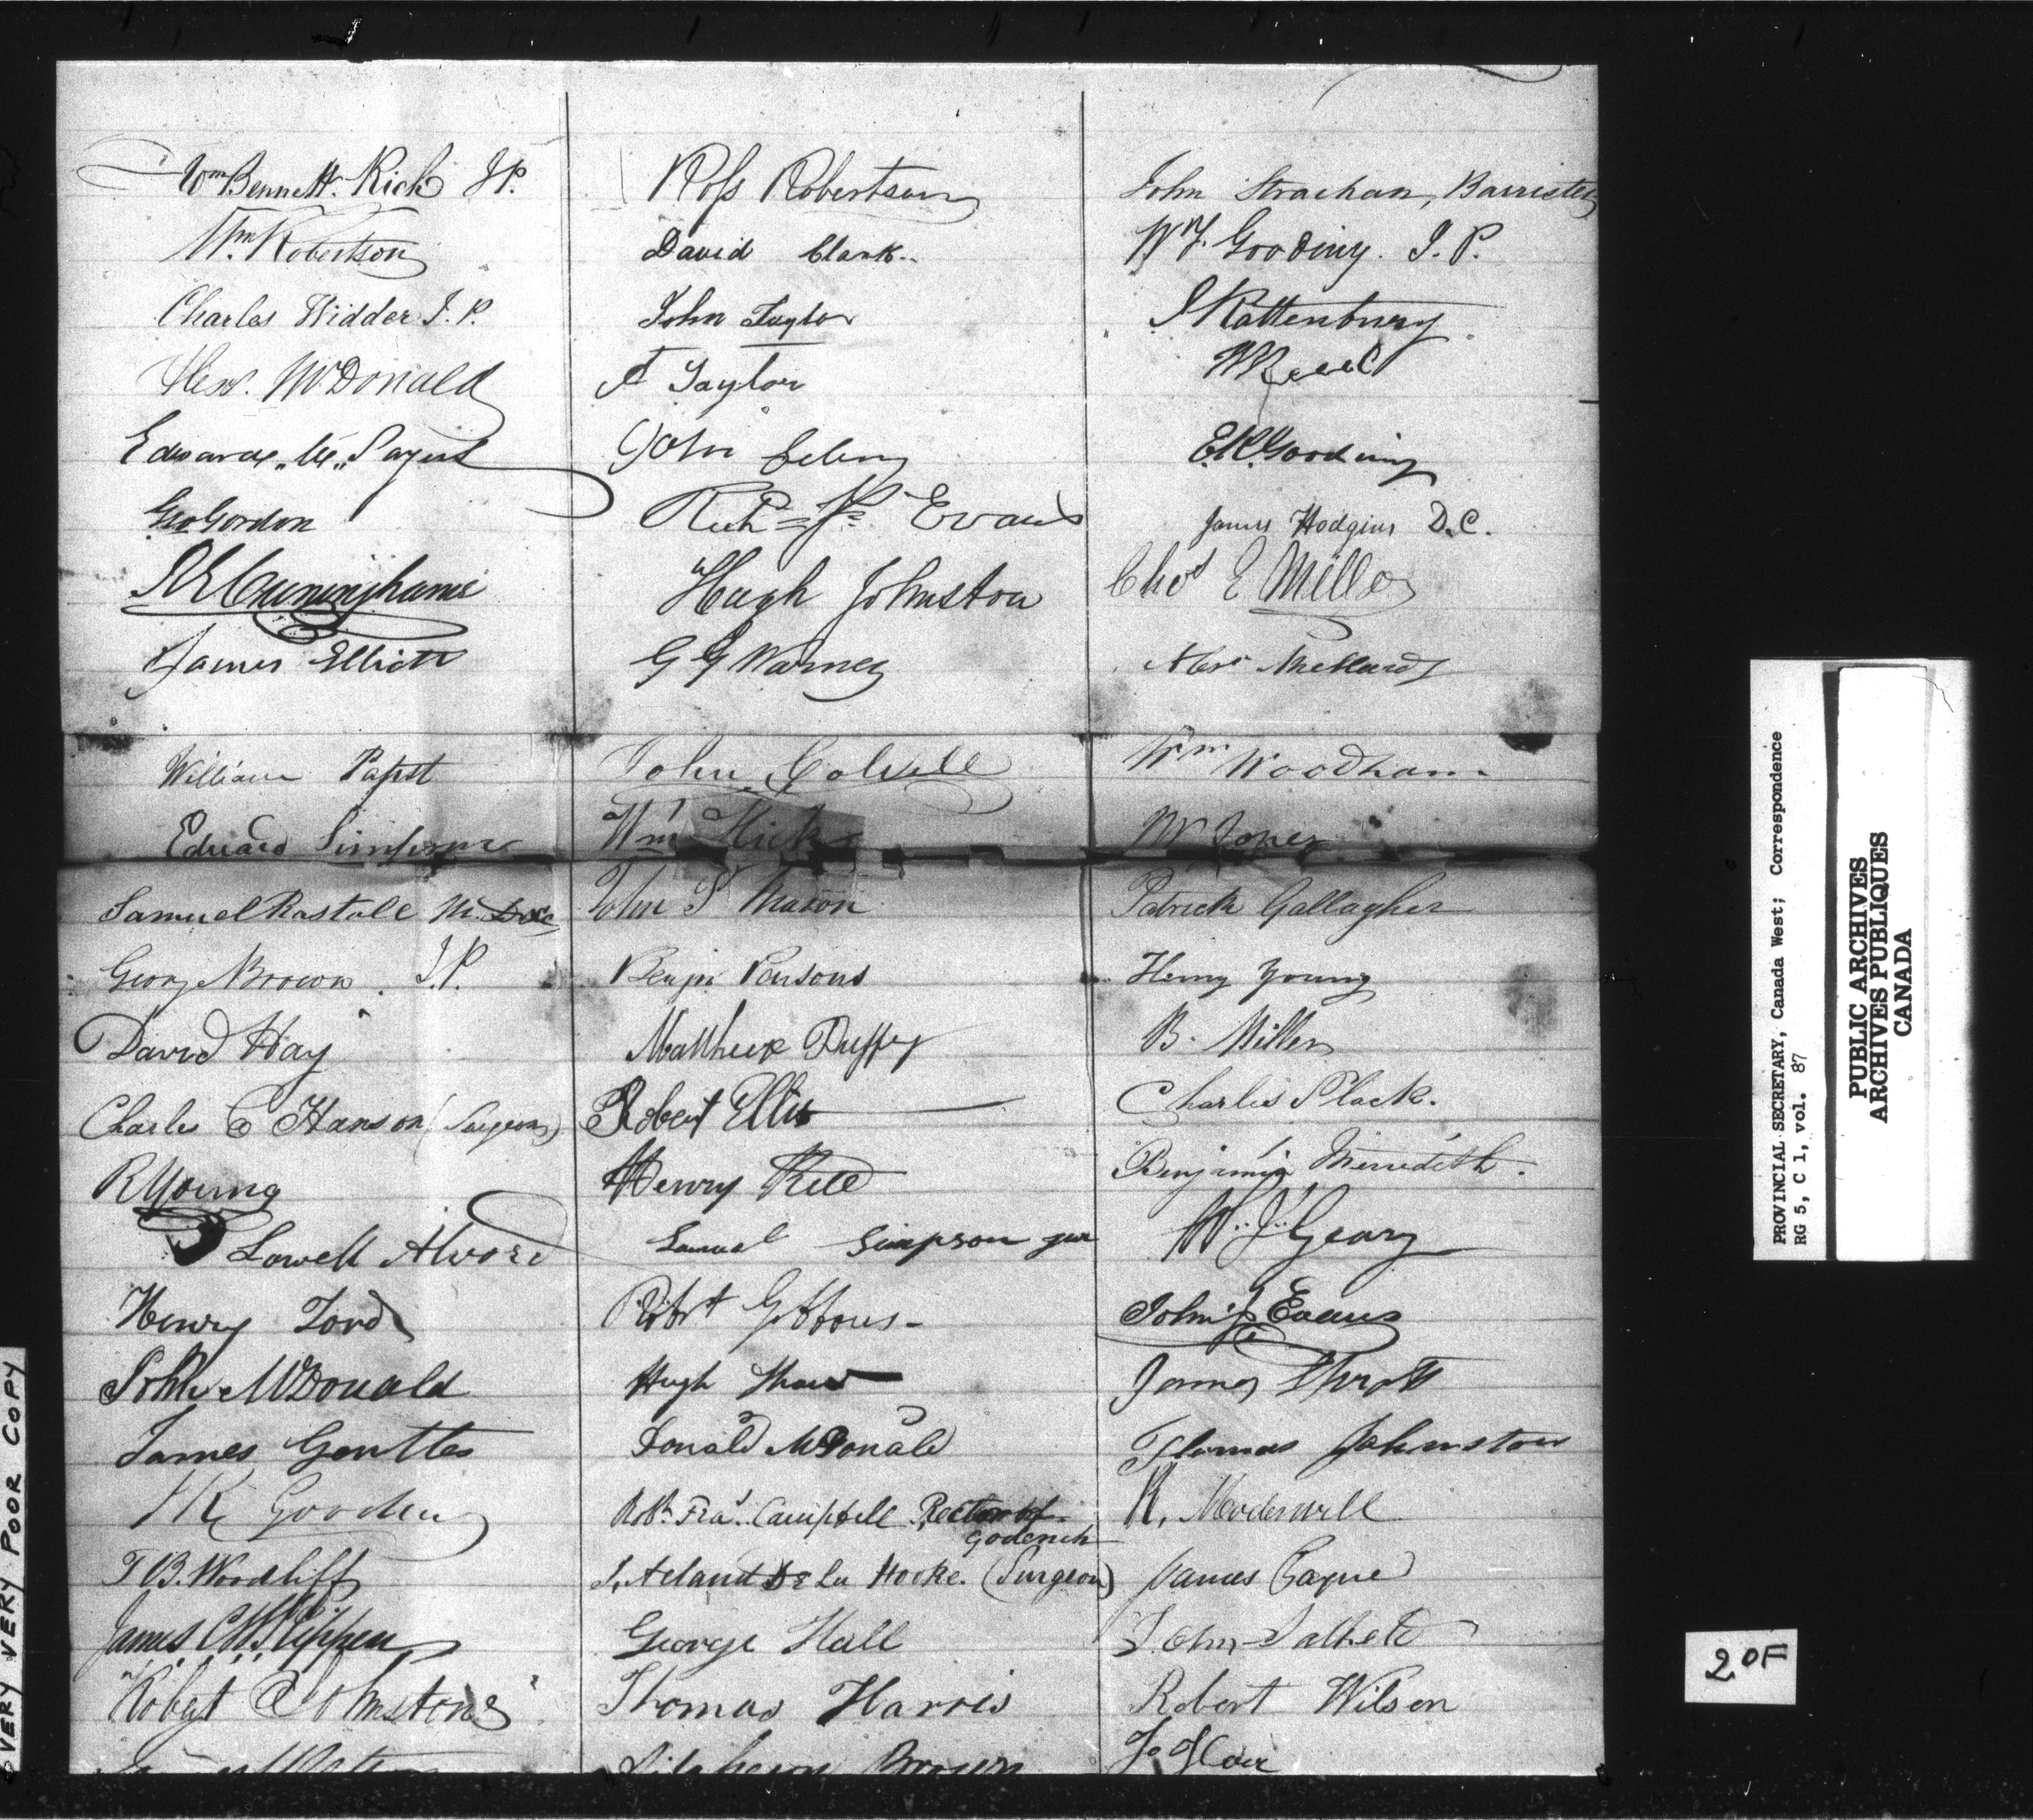 Wm Bennett Rich J.P.
Wm Robertson
Charles Widder J.P.
Alexr. McDonald
Edward
Geo Gordon
Cunninghame
James Elliott
William Papst
Edward Simpson
Samuel Rastall
George Brown J.P.
David Hay
Charles C Hanson (Surgeon)
R Young
Lowell Alvord
Henry Ford
John McDonald
James Gentles
T.B. Woodliff
James C.W.
Robert Johnstone
Ross Robertson
David Clark
John Taylor
A Taylor
John
Richd Evans
Hugh Johnston
G G Warney
John Colwell
Wm Hicks
John S Mason
Benjn Parsons
Matthew Duffey
Robert Ellis
Henry
Samuel Simpson jun
Robt Gibbons
Hugh Shaw
Donald McDonald
Robt. Fras. Campbell Rector of
Goderich
De La Hooke. (Surgeon)
George Hall
Thomas Harris
Brown
John Strachan, Barrister
Wm. F. Gooding. J.P.
Rattenbury
E.R. Gooding
James Hodgins D.C.
Chas E Miller
Wm Woodham
W Jones
Patrick Gallagher
Henry Young
B. Miller
Charles Slack.
Benjamin Meredith.
W. J. Geary
John J. Evans
James
Thomas Johnston
R. Moderwell
James
John
Robert Wilson
VERY VERY POOR COPY
PROVINCIAL SECRETARY, Canada West; Correspondence
RG 5, C 1, vol. 87
PUBLIC ARCHIVES
ARCHIVES PUBLIQUES
CANADA
2 OF